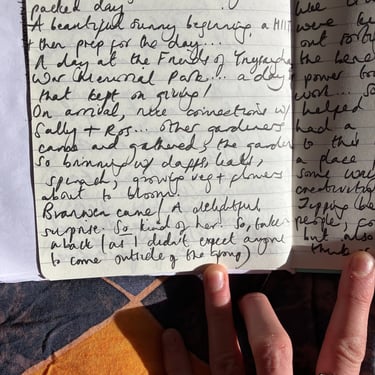 packed day
A beautiful sunny beginning, a HIIT
+ then prep for the day...
A day at the Friends of
War Memorial Park... a day
that kept on giving!
On arrival, nice connections w/
Sally + Ros... other gardeners
came and gathered, the garden
so brimming w/ daffs, leafy,
spinach, growing veg + flowers
about to bloom.
came! A delightful
surprise. So kind of her. So, taken
aback (as I didn't expect anyone
to come outside of the group)
were
out
the
power
work... so
helped
had a
to this
a place
some
people,
but also
think